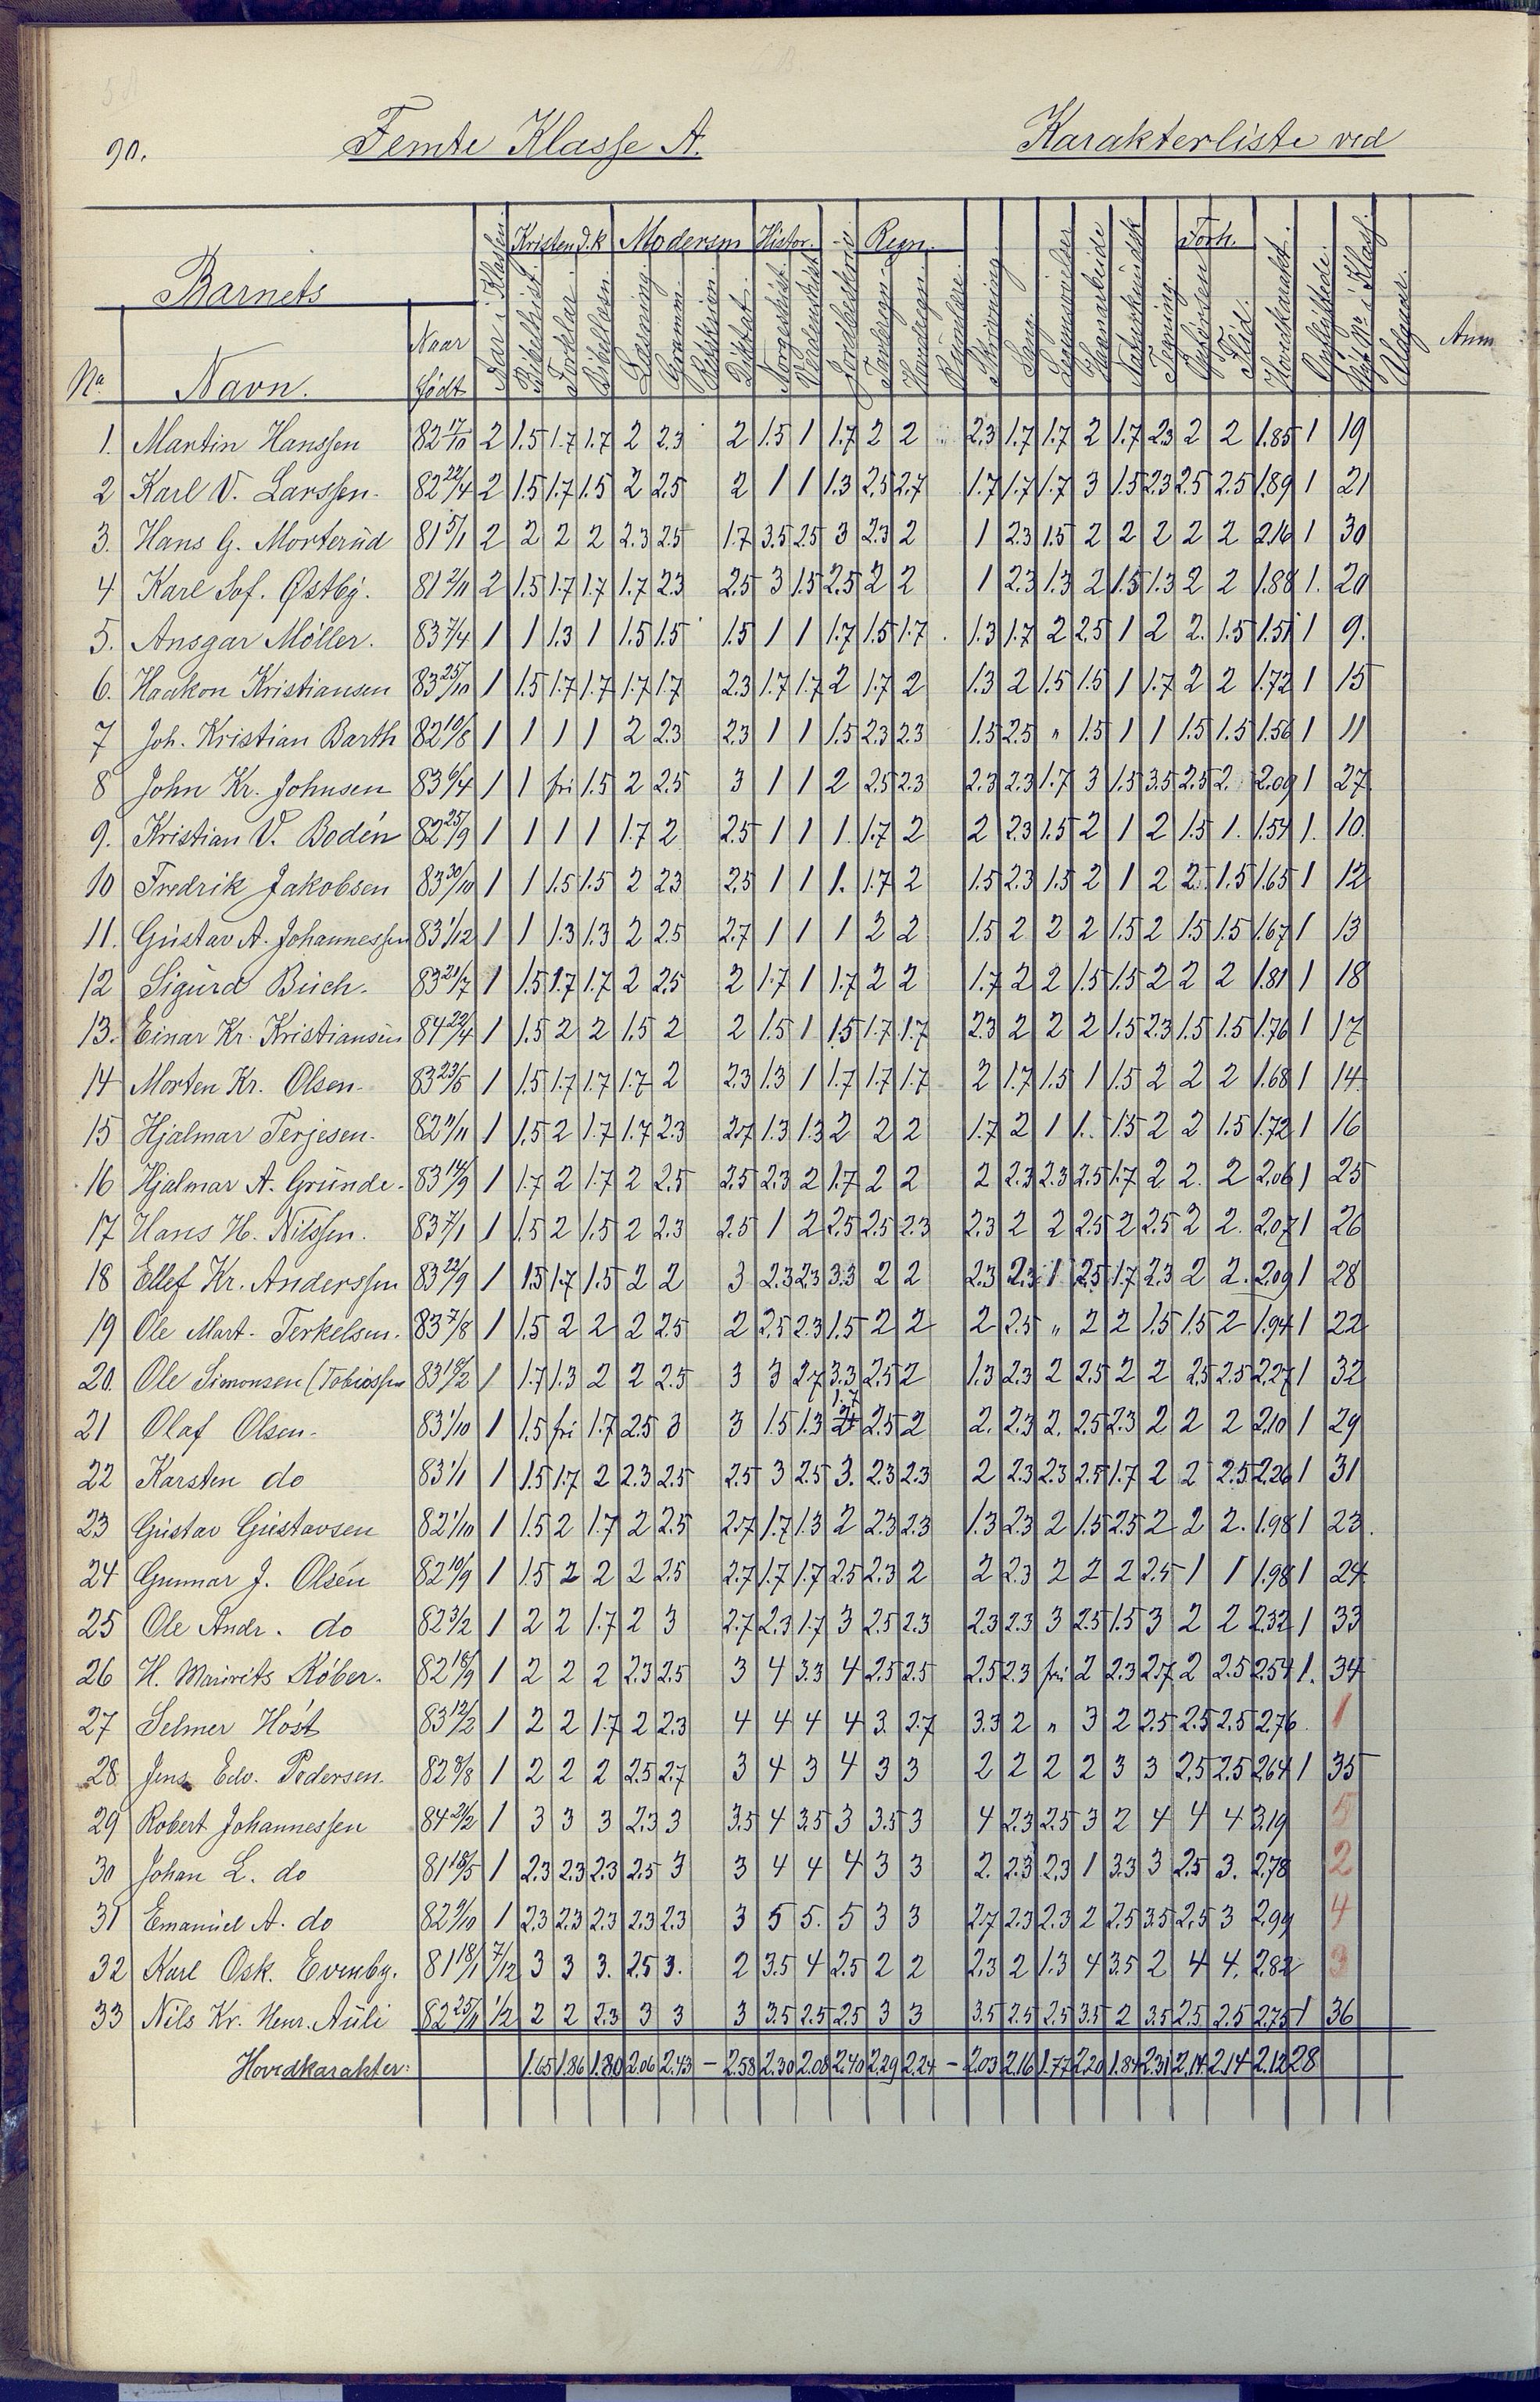 90.
Femte Klasse A.
Karakterliste ved
Barnets
Kristend.k Modersm Histor. Regn. Forh.
No. Navn. Naar født Aar i Klassen Bibelhist. Forklar. Bibellæsn. Læsning Gramm. Diktat. Norgeshist. Verdenshist. Jordbeskriv Tavleregn. Hovedregn. Skrivning. Sang. Legemsøvelser Haandarbeide Naturkundsk Tegning. Opførsel Flid. Hovedkarakt. Opflyttede. Anm
1. Martin Hanssen 82 17/10 2 1.5 1.7 1.7 2 2.3 2 1.5 1 1.7 2 2 2.3 1.7 1.7 2 1.7 2.3 2 2 1.85 1 19
2 Karl V. Larssen. 82 22/4 2 1.5 1.7 1.5 2 2.5 2 1 1 1.3 2.5 2.7 1.7 1.7 1.7 3 1.5 2.3 2.5 2.5 1.89 1 21
3. Hans G. Morterud 81 5/1 2 2 2 2 2.3 2.5 1.7 3.5 2.5 3 2.3 2 1 2.3 1.5 2 2 2 2 2 2.16 1 30
4 Karl Sof. Østby. 81 2/11 2 1.5 1.7 1.7 1.7 2.3 2.5 3 1.5 2.5 2 2 1 2.3 1.3 2 1.5 1.3 2 2 1.88 1. 20
5. Ansgar Möller. 83 7/4 1 1 1.3 1 1.5 1.5 1.5 1 1 1.7 1.5 1.7 1.3 1.7 2 2.5 1 2 2. 1.5 1.51 1 9.
6. Haakon Kristiansen 83 25/10 1 1.5 1.7 1.7 1.7 1.7 2.3 1.7 1.7 2 1.7 2 1.3 2 1.5 1.5 1 1.7 2 2 1.72 1 15
7 Joh. Kristian Barth 82 10/8 1 1 1 1 2 2.3 2.3 1 1 1.5 2.3 2.3 1.5 2.5 " 1.5 1 1 1.5 1.5 1.56 1 11
8 John Kr. Johnsen 83 6/4 1 1 fri 1.5 2 2.5 3 1 1 2 2.5 2.3 2.3 2.3 1.7 3 1.5 3.5 2.5 2. 2.09 1 27
9. Kristian V. Bodén 82 25/9 1 1 1 1 1.7 2 2.5 1 1 1. 1.7 2 2 2.3 1.5 2 1 2 1.5 1. 1.54 1. 10.
10 Fredrik Jakobsen 83 30/10 1 1 1.5 1.5 2 2.3 2.5 1 1 1. 1.7 2 1.5 2.3 1.5 2 1 2 2. 1.5 1.65 1 12
11. Gustav A. Johannessen 83 1/12 1 1 1.3 1.3 2 2.5 2.7 1 1 1 2 2 1.5 2 2 2 1.5 2 1.5 1.5 1.67 1 13
12 Sigurd Buch. 83 21/7 1 1.5 1.7 1.7 2 2.5 2 1.7 1 1.7 2 2 1.7 2 2 1.5 1.5 2 2 2 1.81 1 18
13. Einar Kr. Kristiansen 84 22/4 1 1.5 2 2 1.5 2 2 1.5 1 1.5 1.7 1.7 2.3 2 2 2 1.5 2.3 1.5 1.5 1.76 1 17
14 Morten Kr. Olsen. 83 23/5 1 1.5 1.7 1.7 1.7 2 2.3 1.3 1 1.7 1.7 1.7 2 1.7 1.5 1 1.5 2 2 2 1.68 1 14
15 Hjalmar Terjesen. 82 9/11 1 1.5 2 1.7 1.7 2.3 2.7 1.3 1.3 2 2 2 1.7 2 1 1. 1.5 2 2 1.5 1.72 1 16
16 Hjalmar A. Grunde. 83 14/9 1 1.7 2 1.7 2 2.5 2.5 2.3 2 1.7 2 2 2 2.3 2.3 2.5 1.7 2 2. 2 2.06 1 25
17 Hans H. Nilssen. 83 7/1 1 1.5 2 1.5 2 2.3 2.5 1 2 2.5 2.5 2.3 2.3 2 2 2.5 2 2.5 2 2. 2.07 1 26
18 Ellef Kr. Anderssen 83 22/9 1 1.5 1.7 1.5 2 2 3 2.3 2.3 3.3 2 2 2.3 2.3 1 2.5 1.7 2.3 2 2. 2.09 1 28
19 Ole Mart. Terkelsen. 83 7/8 1 1.5 2 2 2 2.5 2 2.5 2.3 1.5 2 2 2 2.5 " 2 2 1.5 1.5 2 1.94 1 22
20. Ole Simonsen (Tobiassen 83 18/2 1 1.7 1.3 2 2 2.5 3 3 2.7 3.3 2.5 2 1.3 2.3 2 2.5 2 2 2.5 2.5 2.27 1 32
21 Olaf Olsen. 83 1/10 1 1.5 fri 1.7 2.5 3 3 1.5 1.3 1.7 2.5 2 2. 2.3 2. 2.5 2.3 2 2 2 2.10 1 29
22 Karsten do 83 1/1 1 1.5 1.7 2 2.3 2.5 2.5 3 2.5 3. 2.3 2.3 2 2.3 2.3 2.5 1.7 2 2 2.5 2.26 1 31
23 Gustav Gustavsen 82 1/10 1 1.5 2 1.7 2 2.5 2.7 1.7 1.3 2 2.3 2.3 1.3 2.3 2 1.5 2.5 2 2 2. 1.98 1 23.
24 Gunnar J. Olsen 82 10/9 1 1.5 2 2 2 2.5 2.7 1.7 1.7 2.5 2.3 2 2 2.3 2 2 2 2.5 1 1 1.98 1 24
25 Ole Andr. do 82 3/2 1 2 2 1.7 2 3 2.7 2.3 1.7 3 2.5 2.3 2.3 2.3 3 2.5 1.5 3 2 2 2.32 1 33
26 H. Maurits Röber. 82 18/9 1 2 2 2 2.3 2.5 3 4 3.3 4 2.5 2.5 2.5 2.3 fri 2 2.3 2.7 2 2.5 2.54 1. 34
27 Selmer Höst 83 12/2 1 2 2 1.7 2 2.3 4 4 4 4 3. 2.7 3.3 2 " 3 2 2.5 2.5 2.5 2.76. 1
28 Jens Edv. Pedersen. 82 8/8 1 2 2 2 2.5 2.7 3 4 3 4 3 3 2 2 2 2 3 3 2.5 2.5 2.64 1 35
29 Robert Johannessen 84 21/2 1 3 3 3 2.3 3 3.5 4 3.5 3 3.5 3 4 2.3 2.5 3 2 4 4 4 3.19 5
30 Johan L. do 81 18/5 1 2.3 2.3 2.3 2.5 3 3 4 4 4 3 3 2. 2.3 2.3 1 3.3 3 2.5 3. 2.78 2
31 Emanuel A. do 82 9/10 1 2.3 2.3 2.3 2.3 2.3 3 5 5. 5 3 3 2.7 2.3 2.3 2 2.5 3.5 2.5 3 2.99 4
32 Karl Osk. Evenby. 81 18/1 7/12 3 3 3. 2.5 3. 2 3.5 4 2.5 2 2 2.3 2 1.3 4 3.5 2 4 4. 2.82 3
33 Nils Kr. Henr. Auli 82 25/11 1/2 2 2 2.3 3 3 3 3.5 2.5 2.5 3 3 3.5 2.5 2.5 3.5 2 3.5 2.5 2.5 2.75 1 36
Hovedkarakter: 1.65 1.86 1.80 2.06 2.43 – 2.58 2.30 2.08 2.40 2.29 2.24 – 2.03 2.16 1.77 2.20 1.84 2.31 2.14 2.14 2.12 28